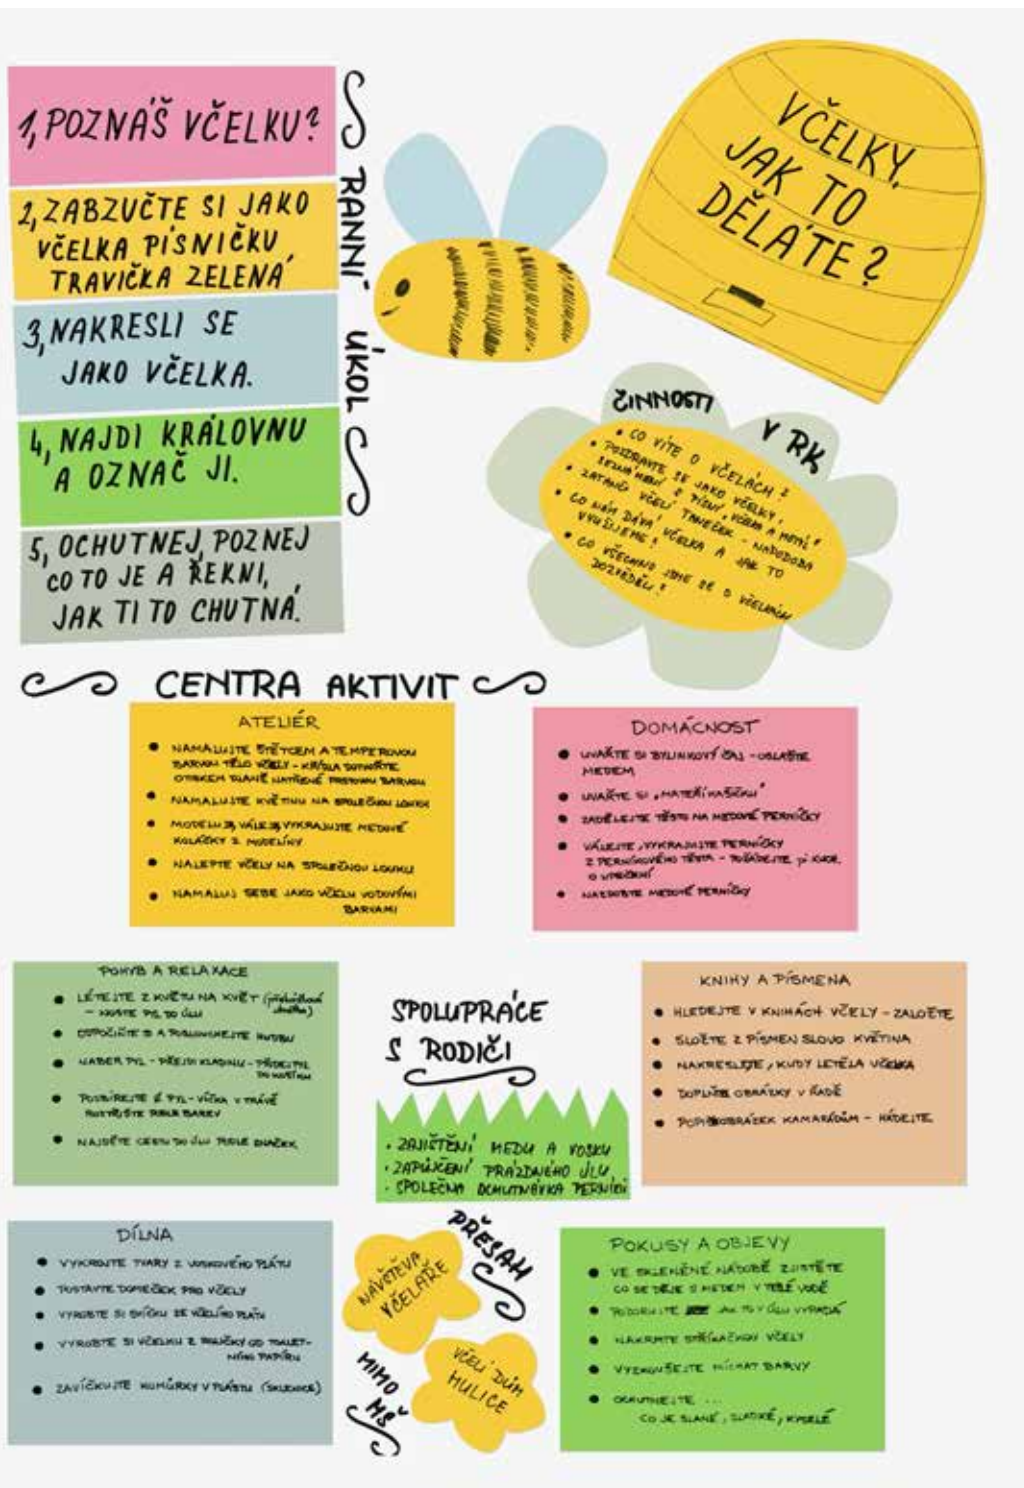 1, POZNÁŠ VČELKU?
2, ZABZUČTE SI JAKO
VČELKA PÍSNIČKU
TRAVIČKA ZELENÁ
3, NAKRESLI SE
JAKO VČELKA.
4, NAJDI KRÁLOVNU
A OZNAČ JI.
5, OCHUTNEJ, POZNEJ
CO TO JE A ŘEKNI,
JAK TI TO CHUTNÁ.
RANNÍ ÚKOL
VČELKY,
JAK TO
DĚLÁTE?
ČINNOSTI
V RK
• CO VÍTE O VČELÁCH?
• POZDRAVTE SE JAKO VČELKY,
SEZNÁMENÍ S PÍSNÍ „VČELA A MOTÝL"
• ZATANČI VČELÍ TANEČEK - NAPODOBA
• CO NÁM DÁVÁ VČELKA A JAK TO
VYUŽIJEME?
• CO VŠECHNO JSME SE O VČELKÁCH
DOZVĚDĚLI?
CENTRA AKTIVIT
ATELIÉR
• NAMALUJTE ŠTĚTCEM A TEMPEROVOU
BARVOU TĚLO VČELY - KŘÍDLA DOTVOŘTE
OTISKEM DLANĚ NATŘENÉ PRSTOVOU BARVOU
• NAMALUJTE KVĚTINU NA SPOLEČNOU LOUKU
• MODELUJ, VÁLEJ, VYKRAJUJTE MEDOVÉ
KOLÁČKY Z MODELÍNY
• NALEPTE VČELY NA SPOLEČNOU LOUKU
• NAMALUJ SEBE JAKO VČELU VODOVÝMI
BARVAMI
DOMÁCNOST
• UVAŘTE SI BYLINKOVÝ ČAJ - OSLAĎTE
MEDEM
• UVAŘTE SI „MATEŘÍ KAŠIČKU"
• ZADĚLEJTE TĚSTO NA MEDOVÉ PERNÍČKY
• VÁLEJTE, VYKRAJUJTE PERNÍČKY
Z PERNÍKOVÉHO TĚSTA - POŽÁDEJTE pí KUCH.
O UPEČENÍ
• NAZDOBTE MEDOVÉ PERNÍČKY
POHYB A RELAXACE
• LÉTEJTE Z KVĚTU NA KVĚT (překážková
- NOSTE PYL DO ÚLU dráha)
• ODPOČIŇTE SI A POSLOUCHEJTE HUDBU
• NABER PYL - PŘEJDI KLADINU - PŘIDEJ PYL
DO KOŠÍKU
• POSBÍREJTE PYL - VÍČKA V TRÁVĚ
ROZTŘIĎTE PODLE BAREV
• NAJDĚTE CESTU DO ÚLU PODLE ZNAČEK
SPOLUPRÁCE
S RODIČI
• ZAJIŠTĚNÍ MEDU A VOSKU
• ZAPŮJČENÍ PRÁZDNÉHO ÚLU
• SPOLEČNÁ OCHUTNÁVKA PERNÍKŮ
KNIHY A PÍSMENA
• HLEDEJTE V KNIHÁCH VČELY - ZALOŽTE
• SLOŽTE Z PÍSMEN SLOVO KVĚTINA
• NAKRESLETE, KUDY LETĚLA VČELKA
• DOPLŇTE OBRÁZKY V ŘADĚ
• POPIŠ OBRÁZEK KAMARÁDŮM - HÁDEJTE
DÍLNA
• VYKROJTE TVARY Z VOSKOVÉHO PLÁTU
• POSTAVTE DOMEČEK PRO VČELY
• VYROBTE SI SVÍČKU ZE VČELÍHO PLÁTU
• VYROBTE SI VČELKU Z ROLIČKY OD TOALET-
NÍHO PAPÍRU
• ZAVÍČKUJTE KOMŮRKY V PLÁSTU (SKLENICE)
PŘESAH
NÁVŠTĚVA
VČELAŘE
MIMO
MŠ
VČELÍ DŮM
HULICE
POKUSY A OBJEVY
• VE SKLENĚNÉ NÁDOBĚ ZJISTĚTE
CO SE DĚJE S MEDEM V TEPLÉ VODĚ
• POZORUJTE JAK TO V ÚLU VYPADÁ
• NAKRMTE STŘÍKAČKOU VČELY
• VYZKOUŠEJTE MÍCHAT BARVY
• OCHUTNEJTE ...
CO JE SLANÉ, SLADKÉ, KYSELÉ